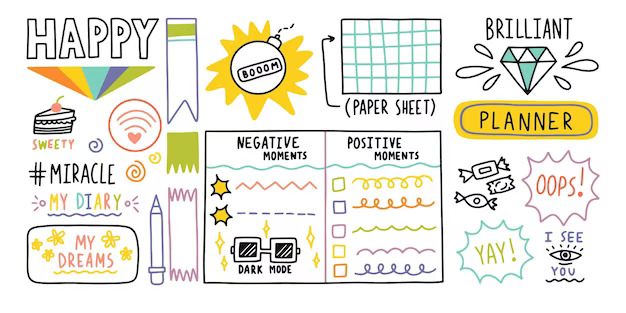 HAPPY
SWEETY
#MIRACLE
MY DIARY
MY
DREAMS
BOOOM
(PAPER SHEET)
NEGATIVE
MOMENTS
DARK MODE
POSITIVE
MOMENTS
BRILLIANT
PLANNER
OOPS!
YAY!
I SEE
YOU